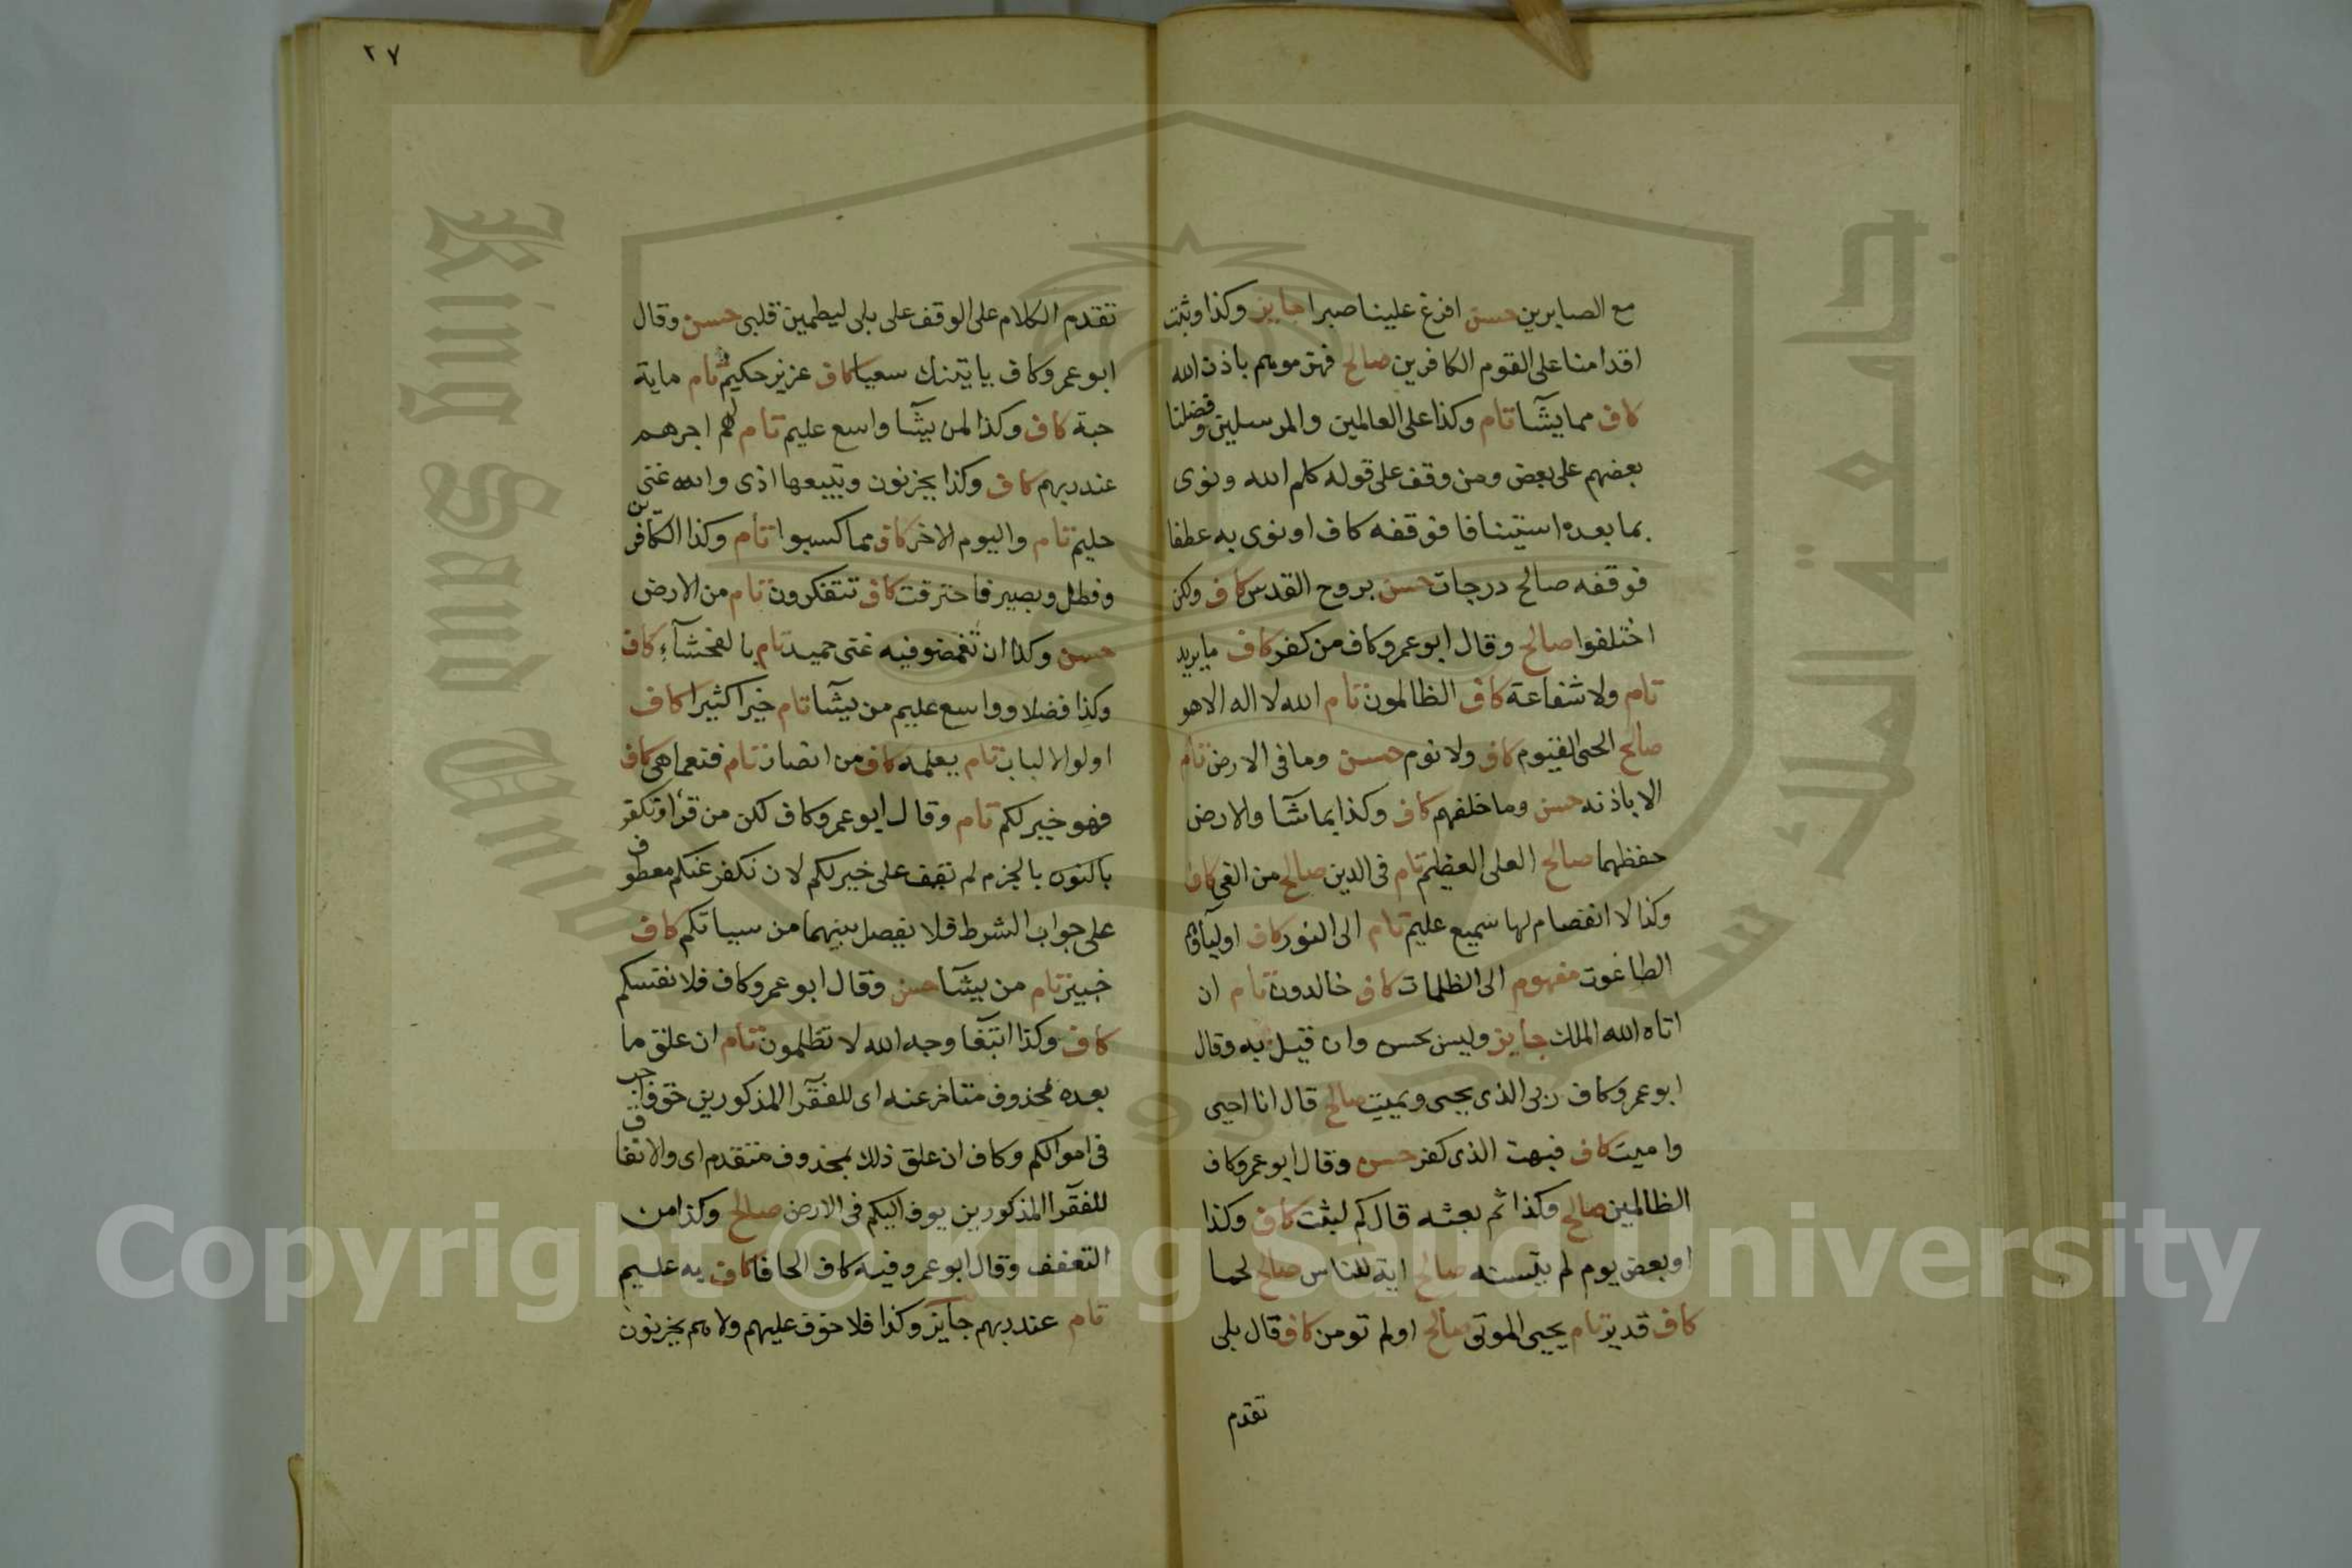 ٢٧
مع الصابرين حسن افرغ علينا صبرا جايز وكذا وثبت
اقدامنا على القوم الكافرين صالح فهزموهم باذن الله
كاف مما يشآ تام وكذا على العالمين والمرسلين وفضلنا
بعضهم على بعض ومن وقف على قوله كلم الله ونوى
بما بعده استينافا فوقفه كاف او نوى به عطفا
فوقفه صالح درجات حسن بروح القدس كاف ولكن
اختلفوا صالح وقال ابو عمرو كاف من كفر كاف ما يريد
تام ولا شفاعة كاف الظالمون تام الله لا اله الا هو
صالح الحى القيوم كاف ولا نوم حسن وما فى الارض تام
الا باذنه حسن وما خلفهم كاف وكذا بما شآ والارض
حفظهما صالح العلى العظيم تام فى الدين صالح من الغى كاف
وكذا لا انفصام لها سميع عليم تام الى النور كاف اوليآؤهم
الطاغوت مفهوم الى الظلمات كاف خالدون تام ان
اتاه الله الملك جايز وليس بحسن وان قيل به وقال
ابو عمرو كاف ربى الذى يحيى ويميت صالح قال انا احيى
واميت كاف فبهت الذى كفر حسن وقال ابو عمرو كاف
الظالمين صالح وكذا ثم بعثه قال كم لبثت كاف وكذا
او بعض يوم لم يتسنه صالح اية للناس صالح لحما
كاف قدير تام يحيى الموتى صالح اولم تومن كاف قال بلى
تقدم
تقدم الكلام على الوقف على بلى ليطمين قلبى حسن وقال
ابو عمرو كاف ياتينك سعيا كاف عزيز حكيم تام ماية
حبة كاف وكذا لمن يشآ واسع عليم تام لهم اجرهم
عند ربهم كاف وكذا يحزنون ويتبعها اذى والله غنى
حليم تام واليوم الاخر كاف مما كسبوا تام وكذا الكافرين
وفطل وبصير فاحترقت كاف تتفكرون تام من الارض
حسن وكذا ان تغمضو فيه غنى حميد تام بالفحشآء كاف
وكذا فضلا وواسع عليم من يشآ تام خيرا كثيرا كاف
اولوا الالباب تام يعلمه كاف من انصار تام فنعما هى كاف
فهو خير لكم تام وقال ابو عمرو كاف لكن من قرا ونكفر
بالنون بالجزم لم نقف على خير لكم لان نكفر عنكم معطوف
على جواب الشرط فلا يفصل بينهما من سياتكم كاف
خبير تام من يشآ حسن وقال ابو عمرو كاف فلانفسكم
كاف وكذا ابتغآ وجه الله لا تظلمون تام ان علق ما
بعده بمحذوف متاخر عنه اى للفقرآ المذكورين حق واجب
فى اموالكم وكاف ان علق ذلك بمحذوف متقدم اى والانفاق
للفقرآ المذكورين يوف اليكم فى الارض صالح وكذا من
التعفف وقال ابو عمرو فيه كاف الحافا كاف به عليم
تام عند ربهم جآيز وكذا فلا خوف عليهم ولا هم يحزنون
King Saud University
جامعة الملك سعود
Copyright © King Saud University